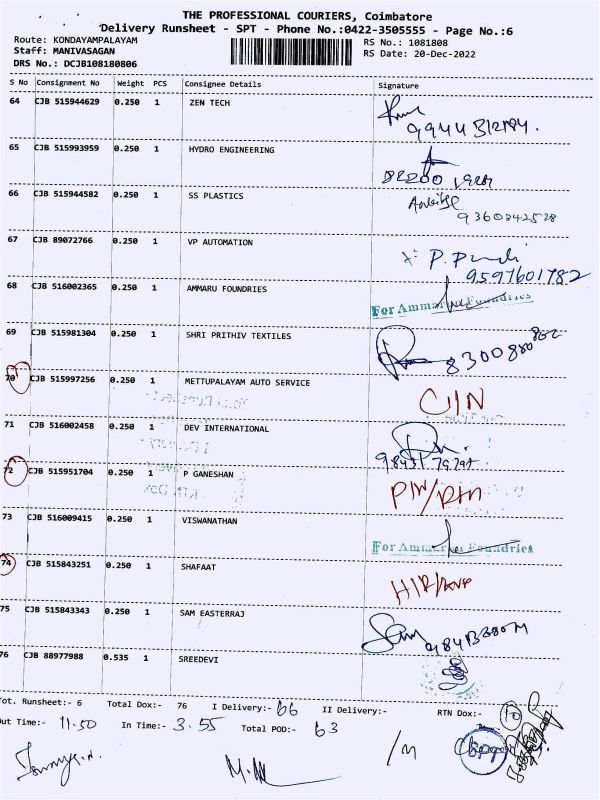 THE PROFESSIONAL COURIERS, Coimbatore
Delivery Runsheet - SPT - Phone No.:0422-3505555 - Page No.:6
Route: KONDAYAMPALAYAM
RS No.: 1081808
Staff: MANIVASAGAN
RS Date: 20-Dec-2022
DRS No.: DCJB108180806
S No Consignment No Weight PCS Consignee Details Signature
64 CJB 515944629 0.250 1 ZEN TECH
65 CJB 515993959 0.250 1 HYDRO ENGINEERING
66 CJB 515944582 0.250 1 SS PLASTICS
9360342528
67 CJB 89072766 0.250 1 VP AUTOMATION
9597601782
68 CJB 516002365 0.250 1 AMMARU FOUNDRIES
For Ammaru Foundries
69 CJB 515981304 0.250 1 SHRI PRITHIV TEXTILES
8300880802
70 CJB 515997256 0.250 1 METTUPALAYAM AUTO SERVICE
71 CJB 516002458 0.250 1 DEV INTERNATIONAL
72 CJB 515951704 0.250 1 P GANESHAN
73 CJB 516009415 0.250 1 VISWANATHAN
For Ammaru Foundries
74 CJB 515843251 0.250 1 SHAFAAT
75 CJB 515843343 0.250 1 SAM EASTERRAJ
Sam
76 CJB 88977988 0.535 1 SREEDEVI
Tot. Runsheet:- 6 Total Dox:- 76 I Delivery:- 66 II Delivery:- RTN Dox:- 10
Out Time:- 11.50 In Time:- 3.55 Total POD:- 63